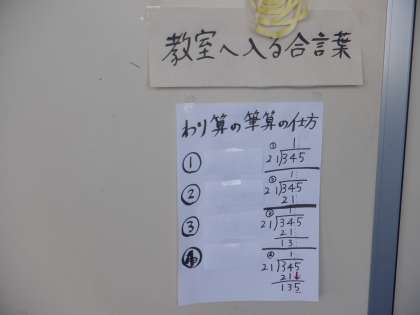 教室へ入る合言葉
わり算の筆算の仕方
①
① 1
21)345
②
② 1
21)345
21
③
③ 1
21)345
21
13
④
④ 1
21)345
21
135